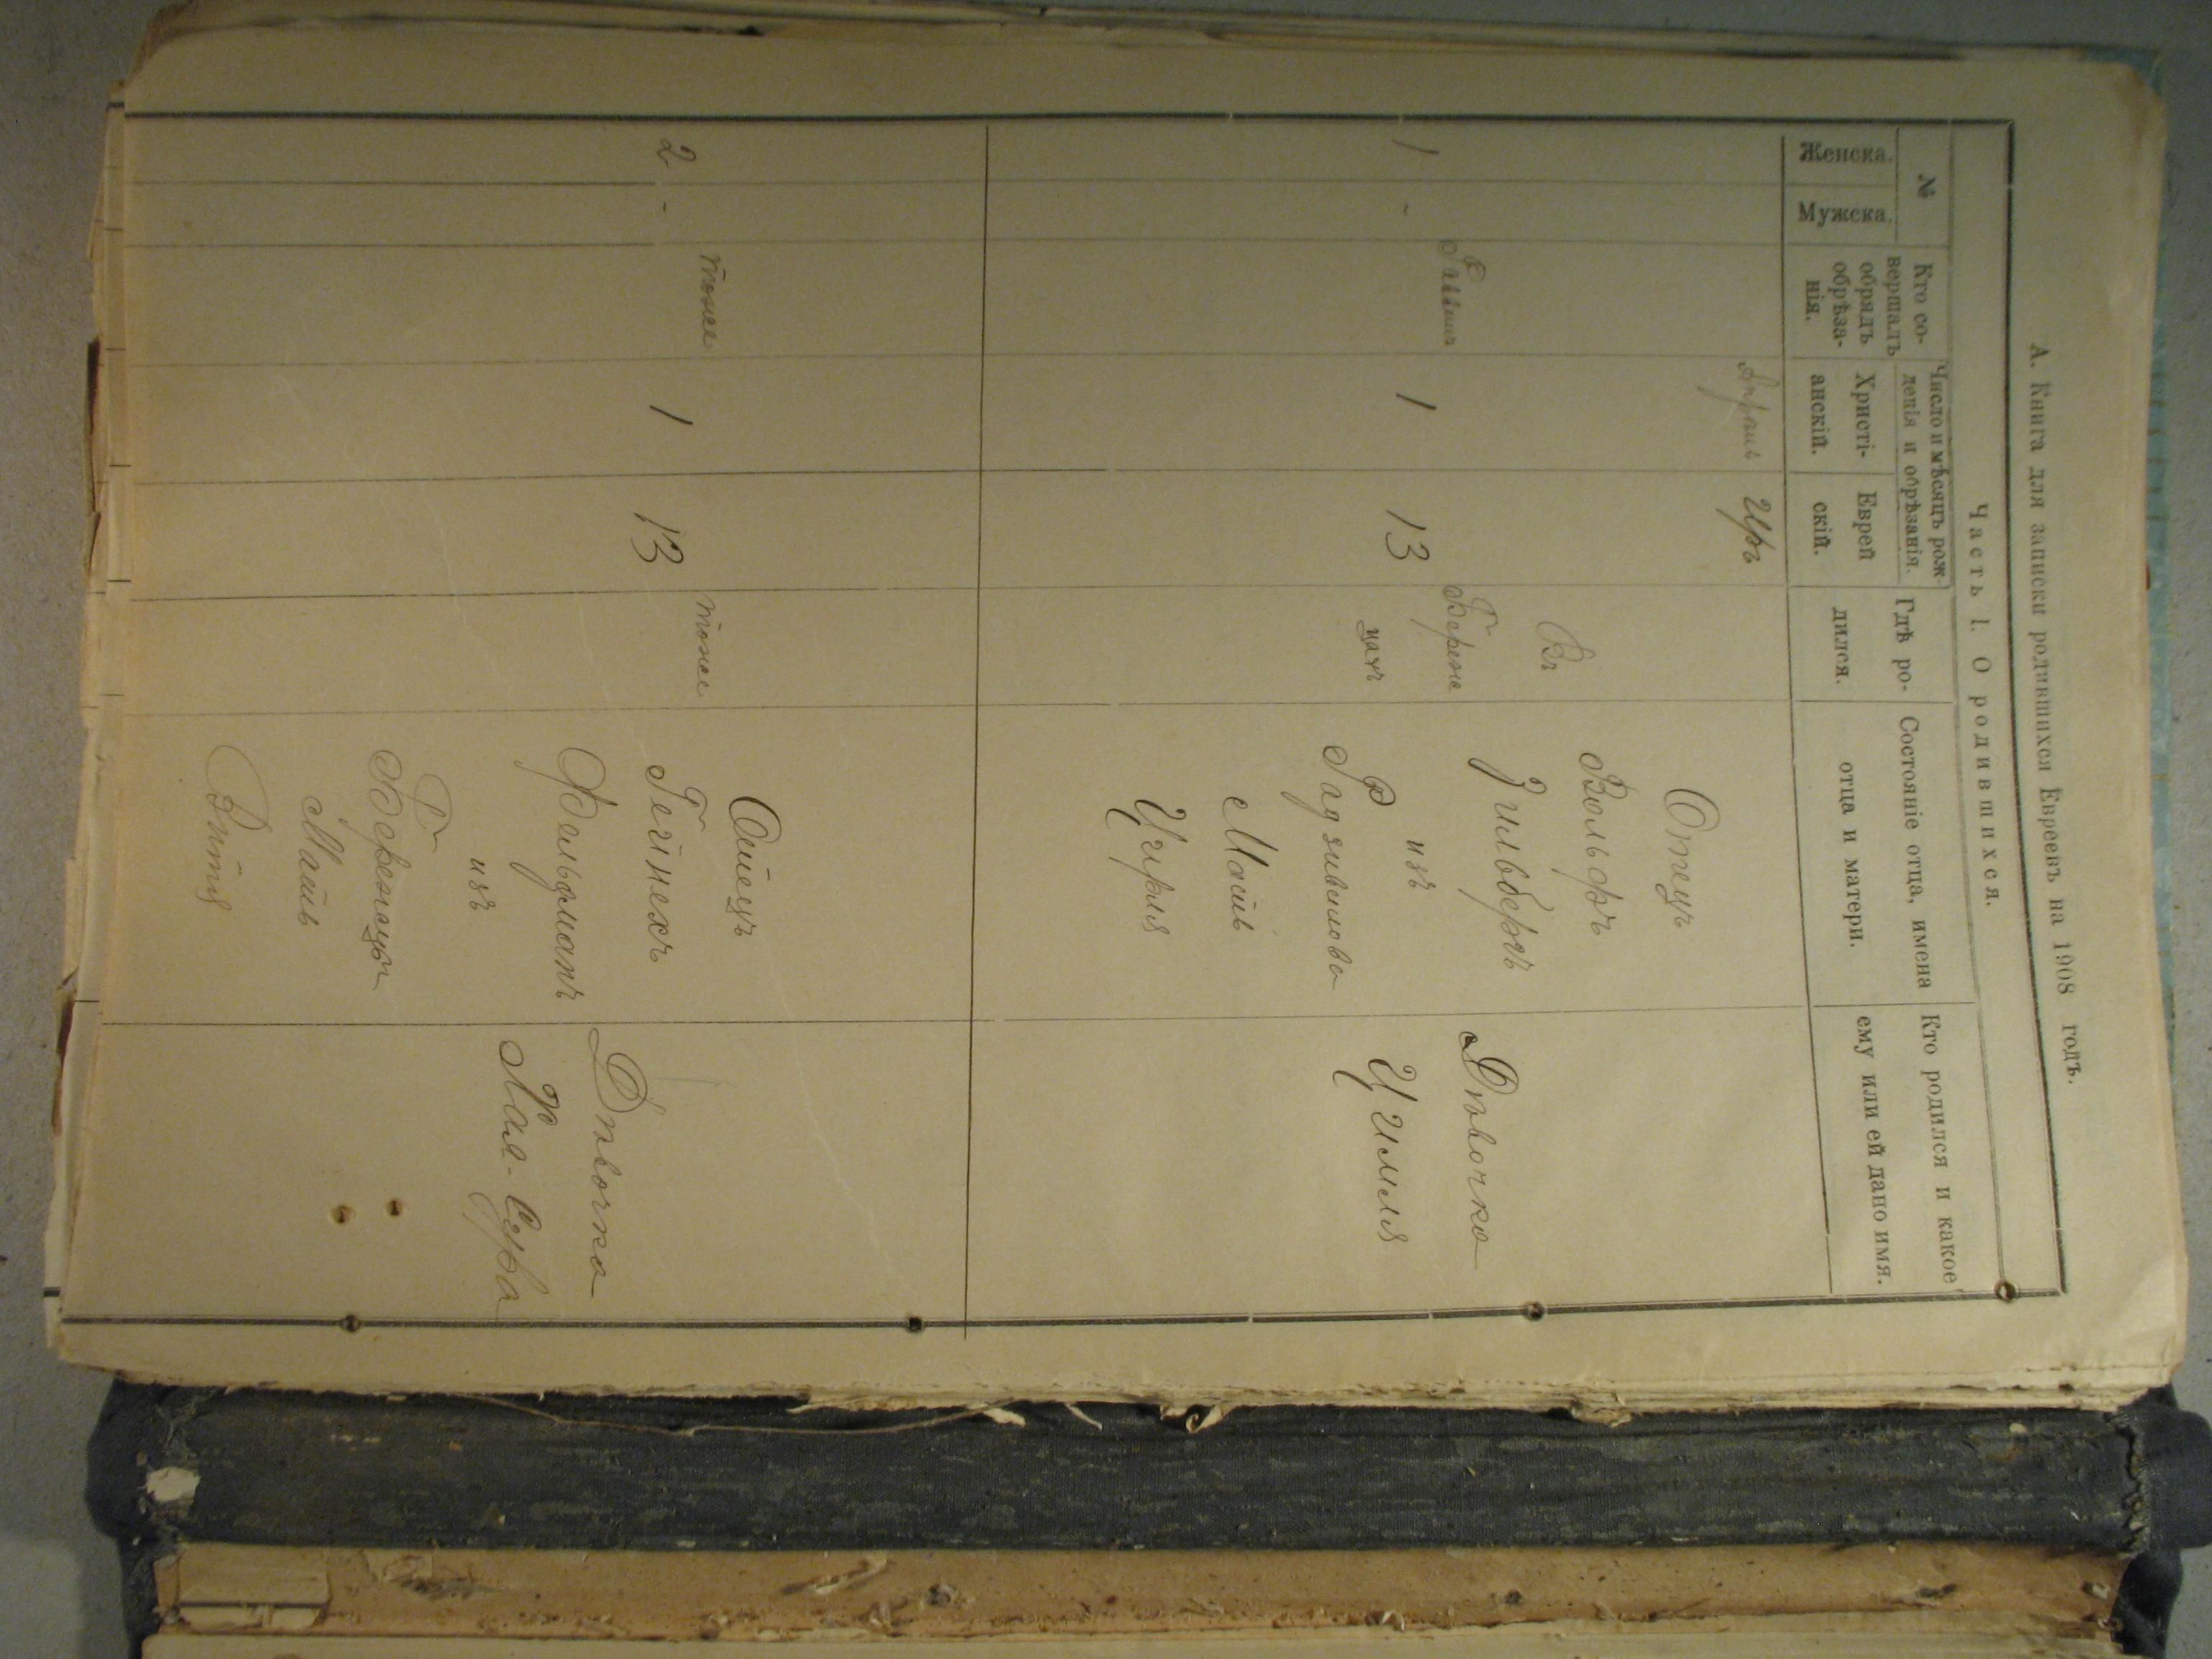 А. Книга для записки родившихся Евреевъ на 1908 годъ.
Часть I. О родившихся.
№
Женска.
Мужска.
Кто со-
вершалъ
обрядъ
обрѣза-
нія.
Число и мѣсяцъ рож-
денія и обрѣзанія.
Христі-
анскій.
Еврей
скій.
Гдѣ ро-
дился.
Состояніе отца, имена
отца и матери.
Кто родился и какое
ему или ей дано имя.
Апрѣль
Иръ
1
-
Раввинъ
1
13
Въ
Береж
цахъ
Отецъ
Вольфъ
Зильберъ
изъ
Радзивилова
Мать
Цирля
Дѣвочка
Цимля
2
-
тоже
1
13
тоже
Отецъ
Гейнехъ
Фельдманъ
изъ
Бережецъ
Мать
Дѣвочка
Хая-Сура